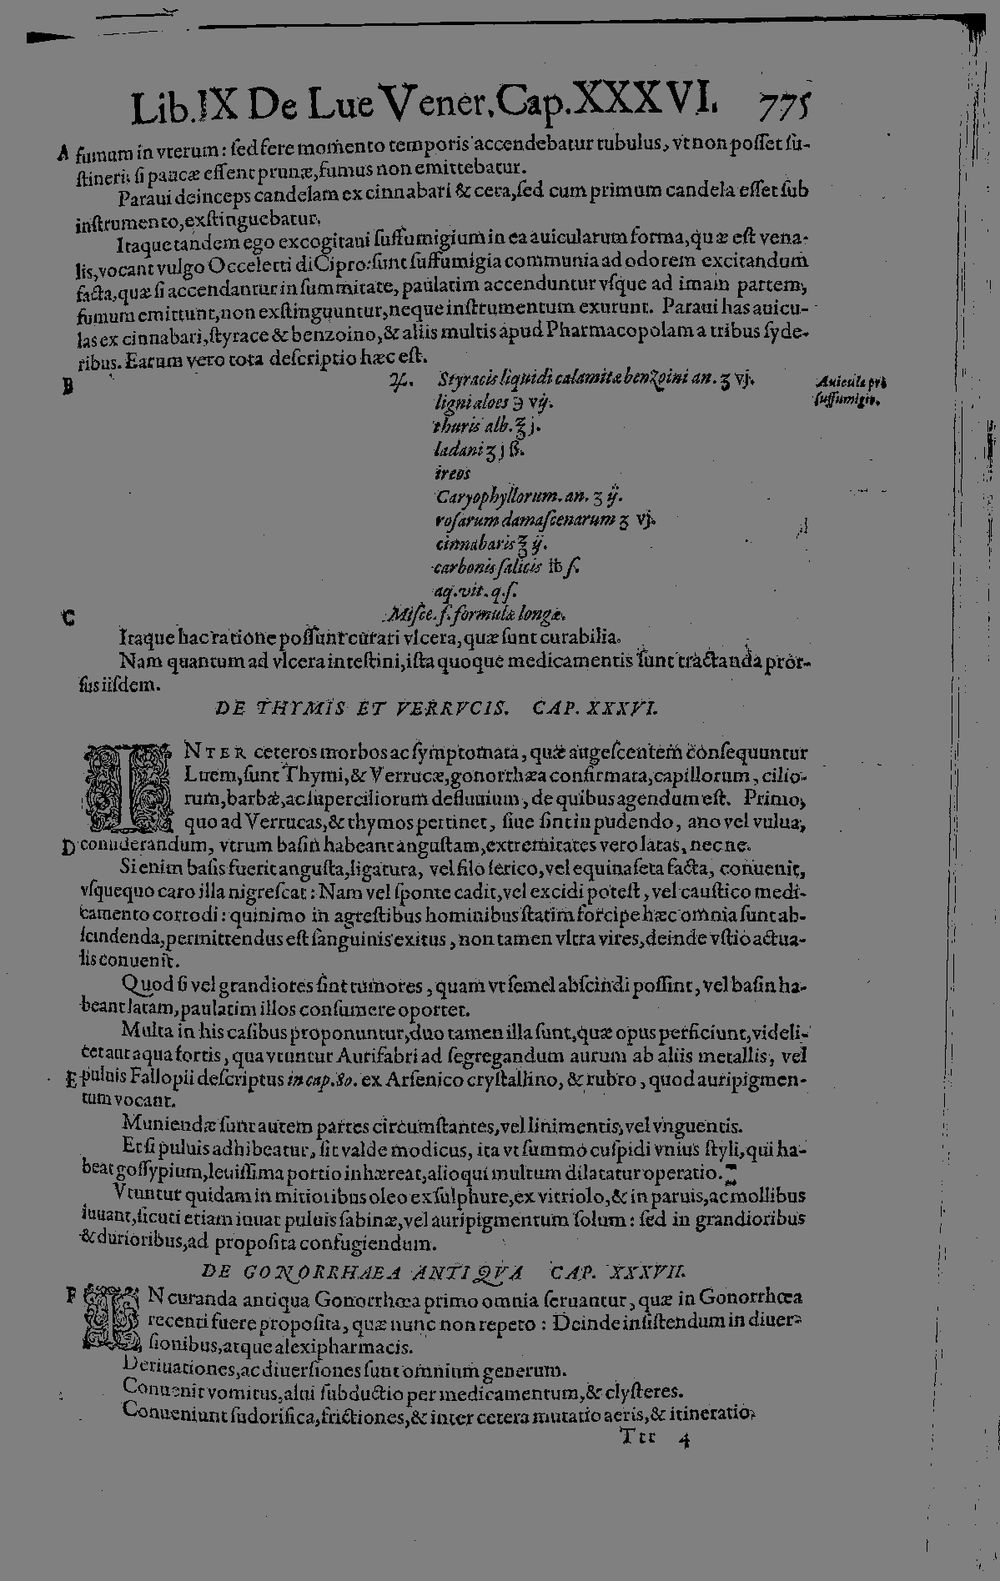 Lib. IX De Lue Vener. Cap. XXXVI. 775
A fumum in vterum: ſed fere momento temporis accendebatur tubulus, vt non poſſet ſu-
ſtineri: ſi paucæ eſſent prunæ, fumus non emittebatur.
Paraui deinceps candelam ex cinnabari & cera, ſed cum primum candela eſſet ſub
inſtrumento, exſtinguebatur.
Itaque tandem ego excogitaui ſuffumigium in ea auicularum forma, quæ eſt vena-
lis, vocant vulgo Occeletti di Cipro: ſunt ſuffumigia communia ad odorem excitandum
facta, quæ ſi accendantur in ſummitate, paulatim accenduntur vſque ad imam partem,
fumum emittunt, non exſtinguuntur, neque inſtrumentum exurunt. Paraui has auicu-
las ex cinnabari, ſtyrace & benzoino, & aliis multis apud Pharmacopolam a tribus ſyde-
ribus. Earum vero tota deſcriptio hæc eſt.
B ℞. Styracis liquidi calamitæ benzoini an. ʒ vj.
Auiculæ pro
ſuffumigio.
ligni aloes ℈ vij.
thuris alb. ℥ j.
ladani ʒ j ß.
ireos
Caryophyllorum. an. ʒ ij.
roſarum damaſcenarum ʒ vj.
cinnabaris ℥ ij.
carbonis ſalicis ℔ ſ.
aq. vit. q. ſ.
C Miſce. f. formulæ longæ.
Itaque hac ratione poſſunt curari vlcera, quæ ſunt curabilia.
Nam quantum ad vlcera inteſtini, iſta quoque medicamentis ſunt tractanda pror-
ſus iiſdem.
DE THYMIS ET VERRVCIS. CAP. XXXVI.
INTER ceteros morbos ac ſymptomata, quæ augeſcentem conſequuntur
Luem, ſunt Thymi, & Verrucæ, gonorrhæa confirmata, capillorum, cilio-
rum, barbæ, ac ſuperciliorum defluuium, de quibus agendum eſt. Primo,
quo ad Verrucas, & thymos pertinet, ſiue ſint in pudendo, ano vel vulua,
D conſiderandum, vtrum baſin habeant anguſtam, extremitates vero latas, necne.
Si enim baſis fuerit anguſta, ligatura, vel filo ſerico, vel equina ſeta facta, conuenit,
vſquequo caro illa nigreſcat: Nam vel ſponte cadit, vel excidi poteſt, vel cauſtico medi-
camento corrodi: quinimo in agreſtibus hominibus ſtatim forcipe hæc omnia ſunt ab-
ſcindenda, permittendus eſt ſanguinis exitus, non tamen vltra vires, deinde vſtio actua-
lis conuenit.
Quod ſi vel grandiores ſint tumores, quam vt ſemel abſcindi poſſint, vel baſin ha-
beant latam, paulatim illos conſumere oportet.
Multa in his caſibus proponuntur, duo tamen illa ſunt, quæ opus perficiunt, videli-
cet aut aqua fortis, qua vtuntur Aurifabri ad ſegregandum aurum ab aliis metallis, vel
E puluis Fallopii deſcriptus in cap. 80. ex Arſenico cryſtallino, & rubro, quod auripigmen-
tum vocant.
Muniendæ ſunt autem partes circumſtantes, vel linimentis, vel vnguentis.
Et ſi puluis adhibeatur, ſit valde modicus, ita vt ſummo cuſpidi vnius ſtyli, qui ha-
beat goſſypium, leuiſſima portio inhæreat, alioqui multum dilatatur operatio.
Vtuntur quidam in mitioribus oleo ex ſulphure, ex vitriolo, & in paruis, ac mollibus
iuuant, ſicuti etiam iuuat puluis ſabinæ, vel auripigmentum ſolum: ſed in grandioribus
& durioribus, ad propoſita confugiendum.
DE GONORRHAEA ANTIQVA CAP. XXXVII.
F IN curanda antiqua Gonorrhœa primo omnia ſeruantur, quæ in Gonorrhœa
recenti fuere propoſita, quæ nunc non repeto: Deinde inſiſtendum in diuer-
ſionibus, atque alexipharmacis.
Deriuationes, ac diuerſiones ſunt omnium generum.
Conuenit vomitus, alui ſubductio per medicamentum, & clyſteres.
Conueniunt ſudorifica, frictiones, & inter cetera mutatio aeris, & itineratio,
Ttt 4